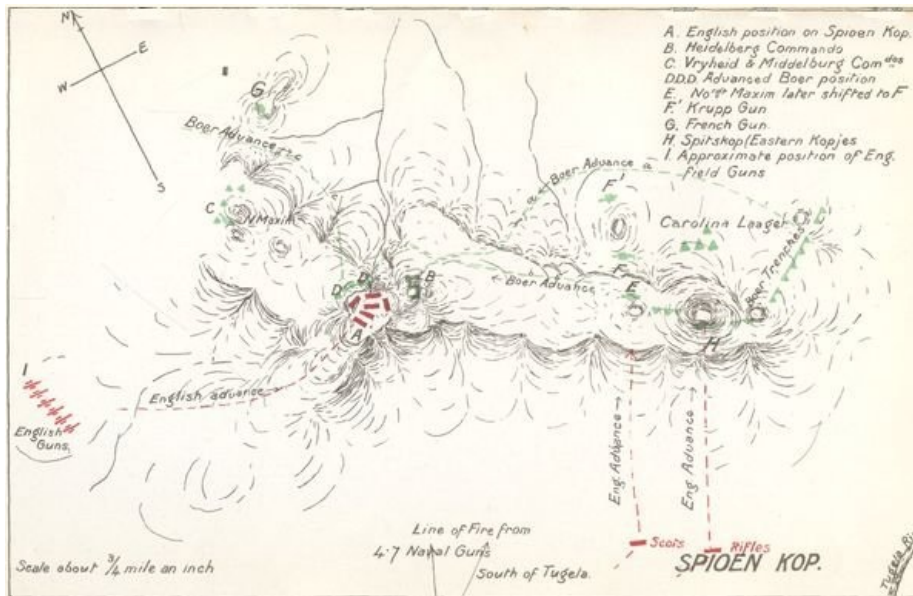 N
E
W
S
A. English position on Spioen Kop.
B. Heidelberg Commando
C. Vryheid & Middelburg Com des
D.D.D. Advanced Boer position
E. Maxim later shifted to F
F.' Krupp Gun
G. French Gun
H. Spitskop (Eastern Kopjes
I. Approximate position of Eng.
field Guns
G
Boer Advance
C
Maxim
D
D
A
B
Boer Advance
a
F'
Carolina Laager
Boer Trenches
F
E
Boer Advance
H
I
English
Guns.
English advance
Eng. Advance
Eng. Advance
Scots
Rifles
Line of Fire from
4.7 Naval Guns
South of Tugela.
Scale about 3/4 mile an inch
SPIOEN KOP.
Tugela